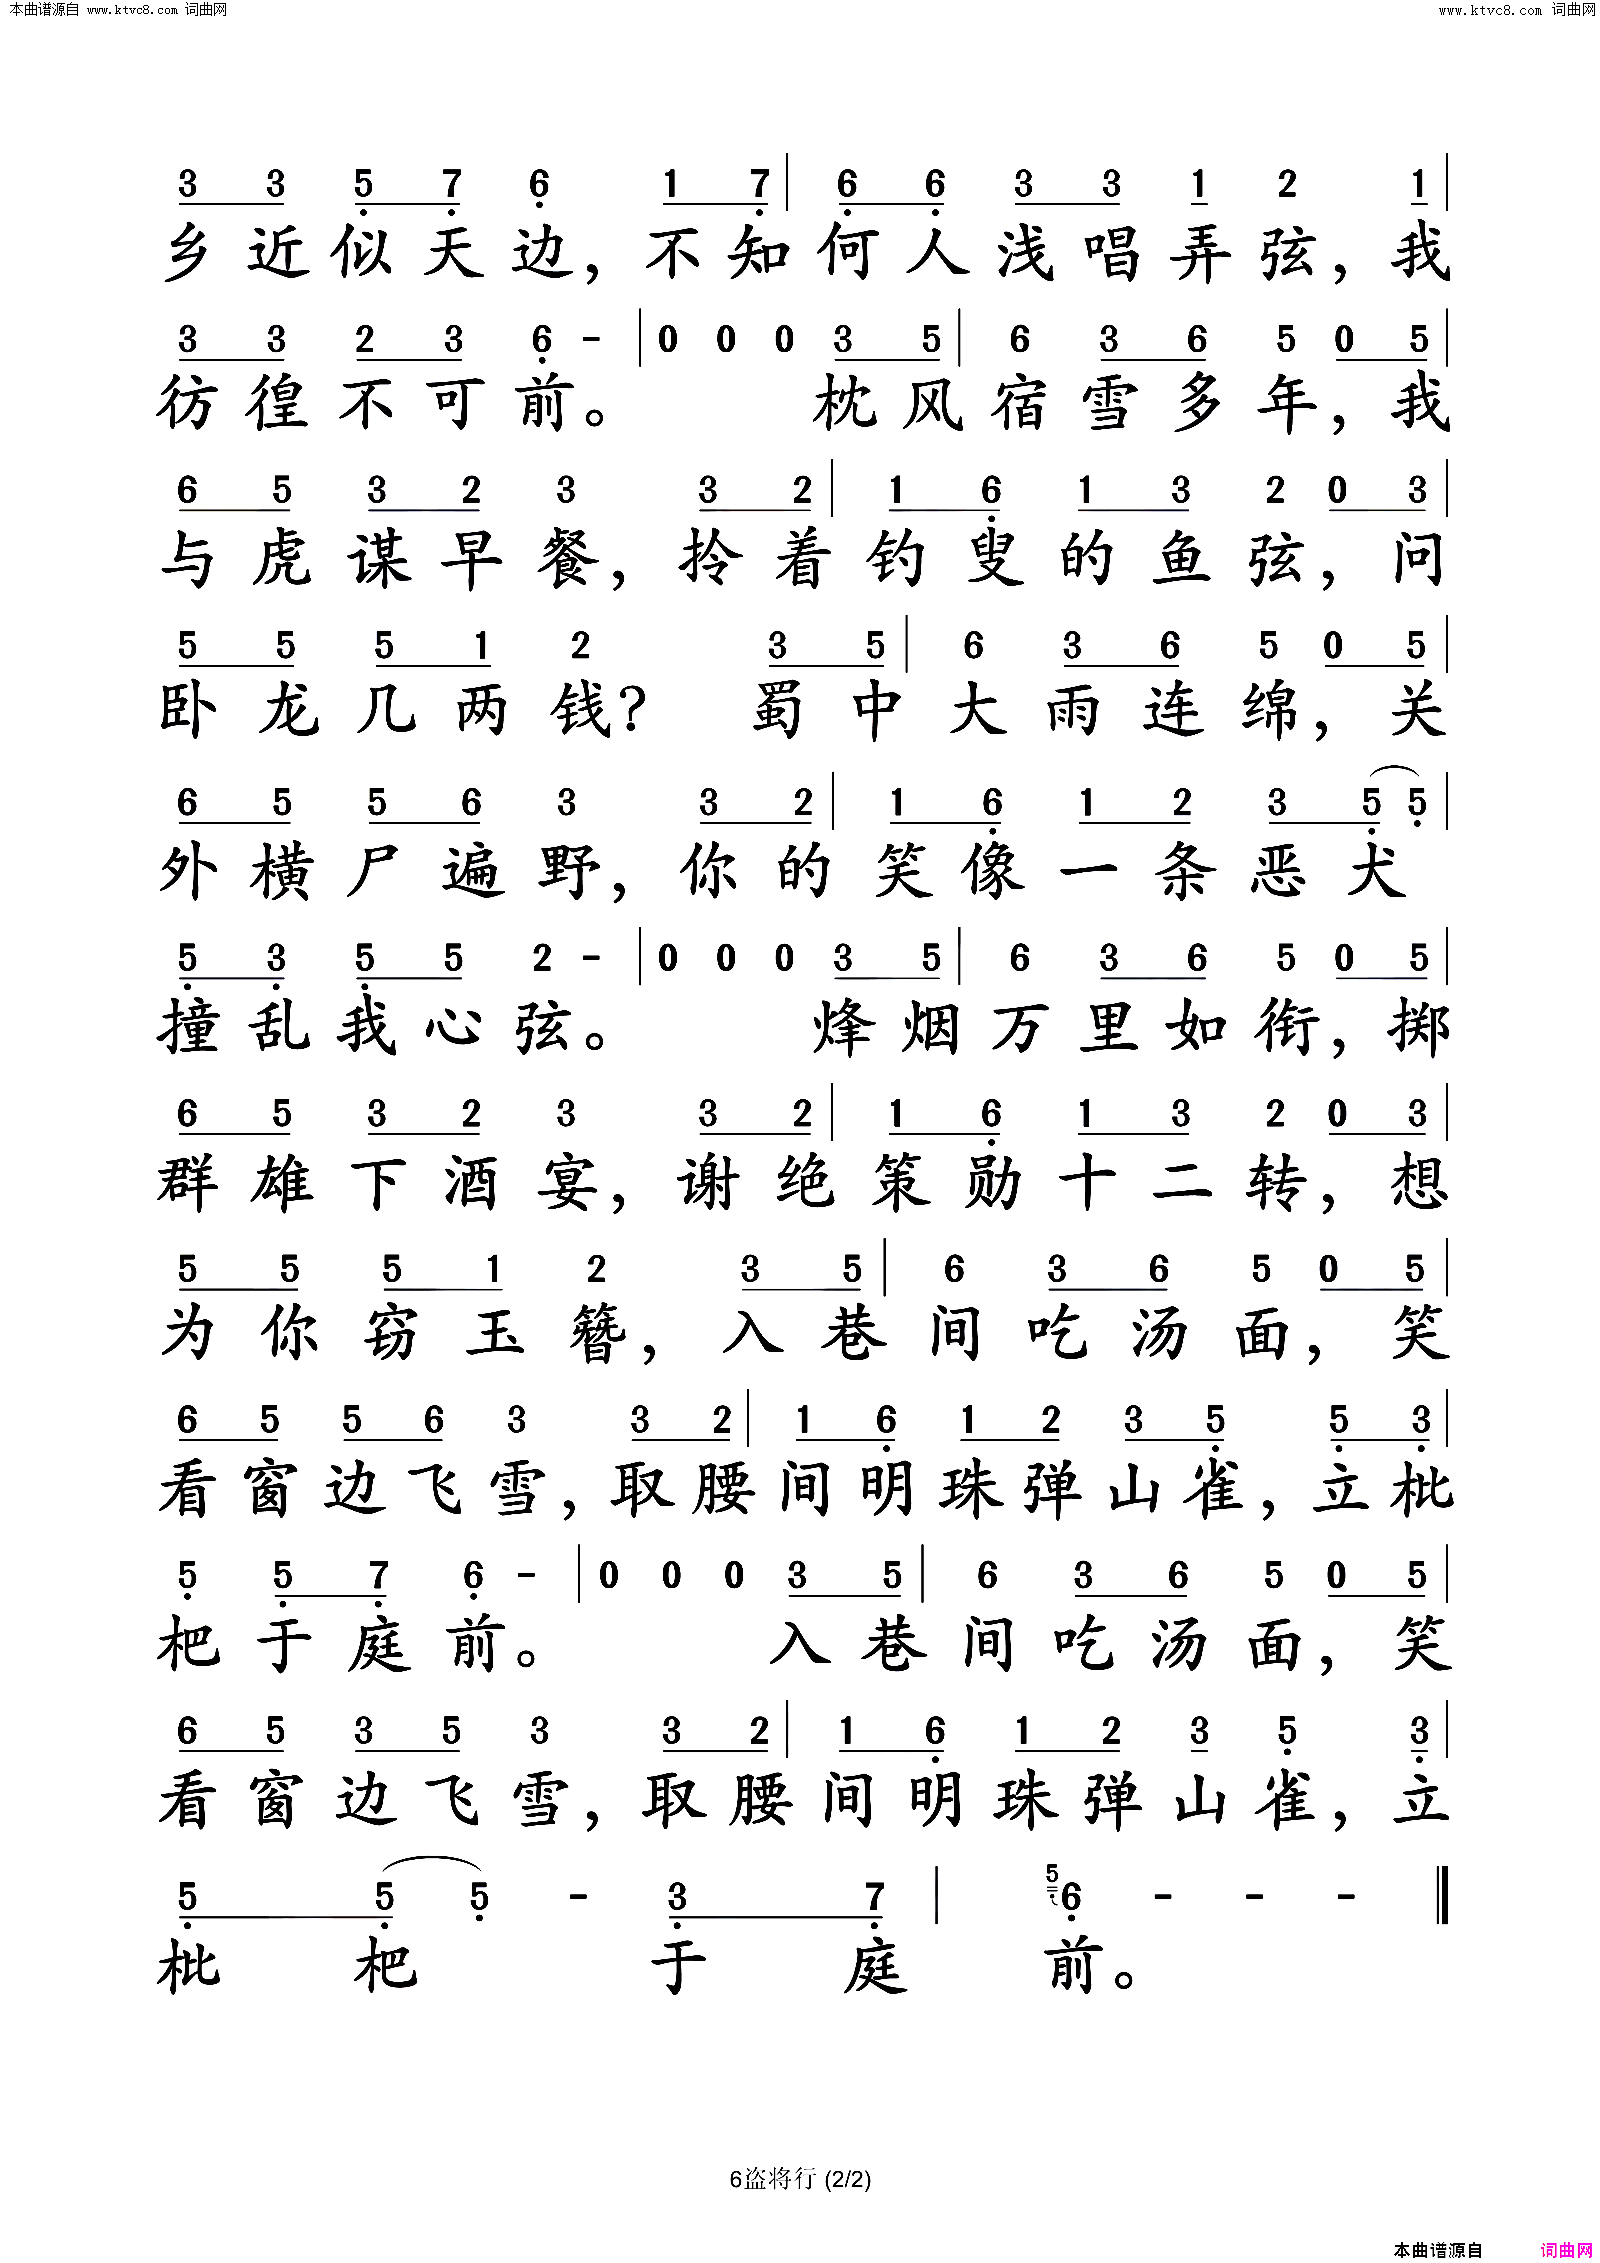 本曲谱源自 www.ktvc8.com 词曲网
www.ktvc8.com 词曲网
3 3 5 7 6 1 7 | 6 6 3 3 1 2 1 |
乡近似天边，不知何人浅唱弄弦，我
3 3 2 3 6 - | 0 0 0 3 5 | 6 3 6 5 0 5 |
彷徨不可前。 枕风宿雪多年，我
6 5 3 2 3 3 2 | 1 6 1 3 2 0 3 |
与虎谋早餐，拎着钓叟的鱼弦，问
5 5 5 1 2 3 5 | 6 3 6 5 0 5 |
卧龙几两钱？ 蜀中大雨连绵，关
6 5 5 6 3 3 2 | 1 6 1 2 3 5 5 |
外横尸遍野，你的笑像一条恶犬
5 3 5 5 2 - | 0 0 0 3 5 | 6 3 6 5 0 5 |
撞乱我心弦。 烽烟万里如衔，掷
6 5 3 2 3 3 2 | 1 6 1 3 2 0 3 |
群雄下酒宴，谢绝策勋十二转，想
5 5 5 1 2 3 5 | 6 3 6 5 0 5 |
为你窃玉簪，入巷间吃汤面，笑
6 5 5 6 3 3 2 | 1 6 1 2 3 5 5 3 |
看窗边飞雪，取腰间明珠弹山雀，立枇
5 5 7 6 - | 0 0 0 3 5 | 6 3 6 5 0 5 |
杷于庭前。 入巷间吃汤面，笑
6 5 3 5 3 3 2 | 1 6 1 2 3 5 3 |
看窗边飞雪，取腰间明珠弹山雀，立
5 5 5 - 3 7 | 5 6 - - - ‖
枇杷 于庭 前。
6盗将行 (2/2)
本曲谱源自 词曲网